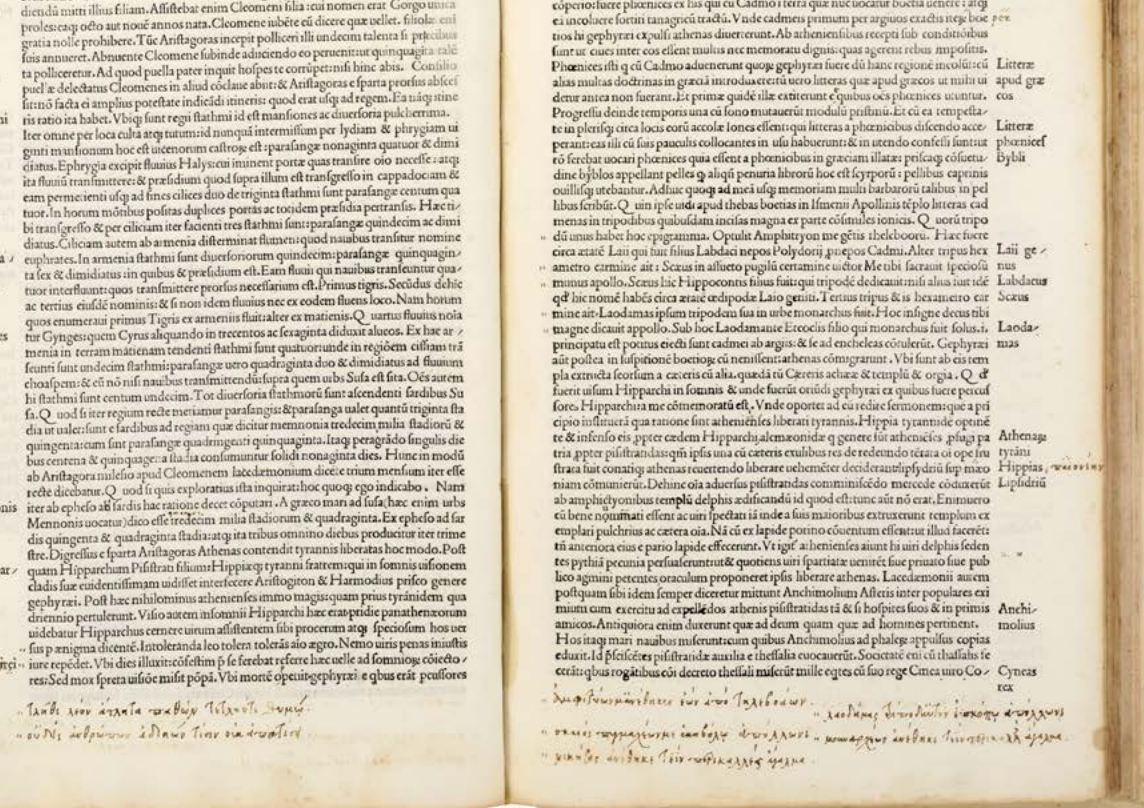 diendū mitti illius filiam. Assistebat enim Cleomeni filia: cui nomen erat Gorgo unica
proles: eaq; octo aut nouē annos nata. Cleomene iubēte cū dicere quæ uellet. filiolæ eni
gratia nolle prohibere. Tūc Aristagoras incepit polliceri illi undecim talenta si precibus
suis annueret. Abnuente Cleomene subinde adiiciendo eo peruenit: ut quinquagita talē
ta polliceretur. Ad quod puella pater inquit hospes te corrūpet: nisi hinc abis. Consilio
puellæ delectatus Cleomenes in aliud cōclaue abiit: & Aristagoras e sparta prorsus absces
sit: nō facta ei amplius potestate indicādi itineris: quod erat usq; ad regem. Ea nāq; itine
ris ratio ita habet. Vbiq; sunt regii stathmi id est mansiones ac diuersoria pulcherrima.
Iter omne per loca culta atq; tutum: id nunquā intermissum per lydiam & phrygiam ui
ginti mansionum hoc est uicenorum castroꝝ est: parasangæ nonaginta quatuor & dimi
diatus. E phrygia excipit fluuius Halys: cui iminent portæ quas transire oīo necesse: atq;
ita fluuiū transmittere: & præsidium quod supra illum est transgresso in cappadociam &
eam permetienti usq; ad fines cilices duo de triginta stathmi sunt: parasangæ centum qua
tuor. In horum mōtibus positas duplices portas ac totidem præsidia pertransis. Hæc ti⸗
bi transgresso & per ciliciam iter facienti tres stathmi sunt: parasangæ quindecim ac dimi
diatus. Ciliciam autem ab armenia disterminat flumen: quod nauibus transitur nomine
euphrates. In armenia stathmi sunt diuersoriorum quindecim: parasangæ quinquagin⸗
ta sex & dimidiatus: in quibus & præsidium est. Eam fluuii qui nauibus transeuntur qua⸗
tuor interfluunt: quos transmittere prorsus necessarium est. Primus tigris. Secūdus dehic
ac tertius eiusdē nominis: & si non idem fluuius nec ex eodem fluens loco. Nam horum
quos enumeraui primus Tigris ex armeniis fluit: alter ex matienis. Quartus fluuius noīa
tur Gynges: quem Cyrus aliquando in trecentos ac sexaginta diduxit alueos. Ex hac ar⸗
menia in terram matienam tendenti stathmi sunt quatuor: unde in regiōem cissiam trā
seunti sunt undecim stathmi: parasangæ uero quadraginta duo & dimidiatus ad fluuium
choaspem: & cū nō nisi nauibus transmittendū: supra quem urbs Susa est sita. Oēs autem
hi stathmi sunt centum undecim. Tot diuersoria stathmorū sunt ascendenti sardibus Su
sa. Quod si iter regium recte metiamur parasangis: & parasanga ualet quantū triginta sta
dia ut ualet: sunt e sardibus ad regiam quæ dicitur memnonia tredecim milia stadiorū &
quingenta: cum sint parasangæ quadringenti quinquaginta. Itaq; peragrādo singulis die
bus centena & quinquagena stadia consumuntur solidi nonaginta dies. Hunc in modū
ab Aristagora milesio apud Cleomenem lacedæmonium dicēte trium mensium iter esse
recte dicebatur. Quod si quis exploratius ista inquirat: hoc quoq; ego indicabo. Nam
iter ab epheso ad sardis hac ratione decet cōputari. A græco mari ad susa (hæc enim urbs
Mennonis uocatur) dico esse tredecim milia stadiorum & quadraginta. Ex epheso ad sar
dis quingenta & quadraginta stadia: atq; ita tribus omnino diebus producitur iter trime
stre. Digressus e sparta Aristagoras Athenas contendit tyrannis liberatas hoc modo. Post
quam Hipparchum Pisistrati filium: Hippiæq; tyranni fratrem: qui in somnis uisionem
cladis suæ euidentissimam uidisset interfecere Aristogiton & Harmodius prisco genere
gephyræi. Post hæc nihilominus athenienses immo magis: quam prius tyrānidem qua
driennio pertulerunt. Visio autem insomnii Hipparchi hæc erat: pridie panathenæorum
uidebatur Hipparchus cernere uirum assistentem sibi procerum atq; speciosum hos uer
sus p ænigma dicentē. Intoleranda leo tolera tolerās aīo ægro. Nemo uiris penas iniustis
iure repēdet. Vbi dies illuxit: cōfestim p se ferebat referre hæc uelle ad somnioꝝ cōiecto⸗
res: Sed mox spreta uisiōe misit pōpā. Vbi mortē opetiit: gephyræi e qbus erāt pcussores
τλῆθι λέων ἄτλητα παθὼν τετληότι θυμῷ
οὐδεὶς ἀνθρώπων ἀδικῶν τίσιν οὐκ ἀποτίσει
coperio: fuere phœnices ex his qui cū Cadmo
ea incoluere sortiti tanagricū tractū. Vnde cadmeis primum per argiuos exactis
tios hi gephyræi expulsi athenas diuerterunt. Ab atheniensibus recepti sub conditiōibus
sunt ut ciues inter eos essent multis nec memoratu dignis: quas agerent rebus impositis.
Phœnices isti q cū Cadmo aduenerunt quoꝝ gephyræi fuere dū hanc regionē incolūt: cū
alias multas doctrinas in græciā introduxere: tū uero litteras quæ apud græcos ut mihi ui
detur antea non fuerant. Et primæ quidē illæ extiterunt e quibus oēs phœnices utuntur.
Progressu deinde temporis una cū sono mutauerūt modulū pristinū. Et cū ea tempesta⸗
te in plerisq; circa locis eorū accolæ Iones essent: qui litteras a phœnicibus discendo acce⸗
perant: eas illi cū suis pauculis collocantes in usu habuerunt: & in utendo confessi sunt: ut
rō ferebat uocari phœnices quia essent a phœnicibus in græciam illatæ: priscaq; cōsuetu⸗
dine byblos appellant pelles q aliqn penuria librorū hoc est scyrporū: pellibus caprinis
ouillisq; utebantur. Adhuc quoq; ad meā usq; memoriam multi barbarorū talibus in pel
libus scribūt. Quin ipse uidi apud thebas boetias in Ismenii Apollinis tēplo litteras cad
meas in tripodibus quibusdam incisas magna ex parte cōsimiles ionicis. Quorū tripo
dū unus habet hoc epigramma. Optulit Amphitryon me gētis theleboorū. Hæc fuere
circa ætatē Laii qui fuit filius Labdaci nepos Polydori: pnepos Cadmi. Alter tripus hex
ametro carmine ait: Scæus in assueto pugilū certamine uictor Me tibi sacrauit speciosū
munus apollo. Scæus hic Hippocontis filius fuit: qui tripodē dedicauit: nisi alius fuit idē
qd hic nomē habēs circa ætatē œdipodæ Laio geniti. Tertius tripus & is hexametro car
mine ait: Laodamas ipsum tripodem sua in urbe monarchus fuit. Hoc insigne decus tibi
magne dicauit appollo. Sub hoc Laodamante Etcoclis filio qui monarchus fuit solus. i.
principatu est potitus eiecti sunt cadmei ab argiis: & se ad encheleas cōtulerūt. Gephyræi
aūt postea in suspitionē boetioꝝ cū uenissent: athenas cōmigrarunt. Vbi sunt ab eis tem
pla extructa seorsum a cæteris cū alia. quædā tū Cereris achææ & templū & orgia. Qd
fuerit uisum Hipparchi in somnis & unde fuerūt oriūdi gephyræi ex quibus fuere percus
sores Hipparchi: a me cōmemoratū est. Vnde oportet ad eū redire sermonem: que a pri
cipio instituerā qua ratione sint atheniēses liberati tyrannis. Hippia tyrannidē optinē
te & infenso eis ppter cædem Hipparchi: alcmæonidæ q genere sūt atheniēses, pfugi pa
tria ppter pisistrandas: qm ipsis una cū cæteris exulibus res de redeundo tētata oī ope fru
strata fuit conatiq; athenas reuertendo liberare uehemēter deciderant: lipsydriū sup mæo
niam cōmunierūt. Dehinc oīa aduersus pisistratidas comminiscēdo mercede cōduxerūt
ab amphictyonibus templū delphis ædificandū id quod est: tunc aūt nō erat. Enimuero
cū bene nommati essent ac uiri spectati iā inde a suis maioribus extruxerunt templum ex
emplari pulchrius ac cætera oīa. Nā cū ex lapide porino cōuentum essent: ut illud facerēt:
tn anteriora eius e pario lapide effecerunt. Vt igit athenienses aiunt hi uiri delphis seden
tes pythiā pecunia persuaserunt: ut & quotiens uiri spartiatæ uenirēt siue priuato siue pub
lico agmini petentes oraculum proponeret ipsis liberare athenas. Lacedæmonii autem
postquam sibi idem semper diceretur mittunt Anchimolium Asteris inter populares exi
mium cum exercitu ad expellēdos athenis pisistratidas tā & si hospites suos & in primis
amicos. Antiquiora enim duxerunt quæ ad deum quam quæ ad homines pertinent.
Hos itaq; mari nauibus miserunt: cum quibus Anchimolius ad phaleꝝ appulsus copias
eduxit. Id psciscētes pisistratidæ auxilia e thessalia euocauerūt. Societatē eni cū thassalis fe
cerāt: qbus rogātibus cōi decreto thessali miserūt mille eqtes cū suo rege Cinea uiro Co⸗
Litteræ
apud græ
cos
Litteræ
phœnices
Bybli
Laii ge⸗
nus
Labdacus
Scæus
Laoda⸗
mas
Athenaꝝ
tyrāni
Hippias,
Lipsidriū
Anchi⸗
molius
Cyneas
rex
Ἀμφιτρύων μ' ἀνέθηκεν ἐὼν ἀπὸ Τηλεβοάων
σκαῖος πυγμαχέων με ἑκηβόλῳ ἀπόλλωνι
νικήσας ἀνέθηκε τεῒν περικαλλὲς ἄγαλμα
λαοδάμας τρίποδ' αὐτὸν ἐυσκόπῳ ἀπόλλωνι
μουναρχέων ἀνέθηκε τεῒν περικαλλὲς ἄγαλμα